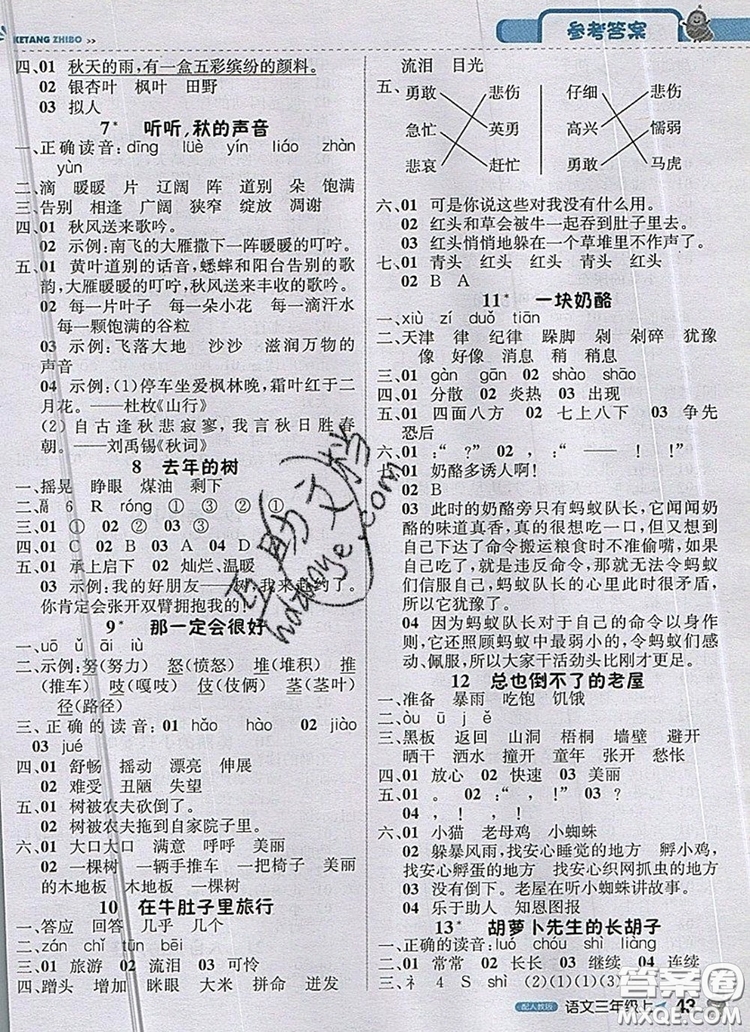 KETANG ZHIBO >>
参考答案
四、01 秋天的雨,有一盒五彩缤纷的颜料。
02 银杏叶 枫叶 田野
03 拟人
7* 听听,秋的声音
一、正确读音:dīng lüè yín liáo zhàn
yùn
二、滴 暖暖 片 辽阔 阵 道别 朵 饱满
三、告别 相逢 广阔 狭窄 绽放 凋谢
四、01 秋风送来歌吟。
02 示例:南飞的大雁撒下一阵暖暖的叮咛。
五、01 黄叶道别的话音,蟋蟀和阳台告别的歌
韵,大雁暖暖的叮咛,秋风送来丰收的歌吟。
02 每一片叶子 每一朵小花 每一滴汗水
每一颗饱满的谷粒
03 示例:飞落大地 沙沙 滋润万物的
声音
04 示例:(1)停车坐爱枫林晚,霜叶红于二
月花。——杜牧《山行》
(2)自古逢秋悲寂寥,我言秋日胜春
朝。——刘禹锡《秋词》
8 去年的树
一、摇晃 睁眼 煤油 剩下
6 R róng ① ③ ① ②
三、01 ① 02 ② 03 ③
四、01 C 02 B 03 A 04 D
五、01 承上启下 02 灿烂、温暖
03 示例:我的好朋友——
你肯定会张开双臂拥抱我的
9* 那一定会很好
一、uō ǔ āi iù
二、示例:努(努力) 怒(愤怒) 堆(堆积) 推
(推车) 吱(嘎吱) 歧(歧视) 茎(茎叶)
径(路径)
三、正确的读音:01 hǎo hào 02 jiào
03 jué
四、01 舒畅 摇动 漂亮 伸展
02 难受 丑陋 失望
五、01 树被农夫砍倒了。
02 树被农夫拖到自家院子里。
六、01 大口大口 满意 呼呼 美丽
02 一棵树 一辆手推车 一把椅子 美丽
的木地板 木地板 一棵树
10 在牛肚子里旅行
一、答应 回答 几乎 几个
二、zán chǐ tūn bēi
三、01 旅游 02 流泪 03 可怜
四、蹭头 增加 眯眼 大米 拼命 迸发
流泪 目光
五、勇敢 悲伤 仔细 悲伤
急忙 英勇 高兴 懦弱
悲哀 赶忙 勇敢 马虎
六、01 可是你说这些对我没有什么用。
02 红头和草会被牛一起吞到肚子里去。
03 红头悄悄地躲在一个草堆里不作声了。
七、01 青头 红头 红头 青头 红头
02 B A
11* 一块奶酪
一、xiù zí duǒ tiān
二、天津 律 纪律 跺脚 剁 剁碎 犹豫
像 好像 消息 稍 稍息
三、01 gàn gān 02 shào shāo
四、01 分散 02 炎热 03 出现
五、01 四面八方 02 七上八下 03 争先
恐后
六、01 :“ ?” 02 :“ !” 03 , 。
七、01 奶酪多诱人啊!
02 B
03 此时的奶酪旁只有蚂蚁队长,它闻闻奶
酪的味道真香,真的很想偷嘴,但是它想到
自己下达了命令搬运粮食时不能偷嘴,如
果自己做不到,就是违反命令,那就无法令蚂蚁
们信服自己,蚂蚁队长的心里此时很矛盾,
所以它犹豫了。
04 因为蚂蚁队长对自己的命令以身作
则,它还照顾蚂蚁中最弱小的,令蚂蚁们感
动、佩服,所以大家干活劲头比刚才更足。
12 总也倒不了的老屋
一、准备 暴雨 吃饱 饥饿
二、òu ū jǐ ě
三、黑板 返回 山洞 梧桐 墙壁 避开
晒干 洒水 撞开 童年 张开 帐篷
四、01 放心 02 快速 03 美丽
五、01 “ , !” 02 , 。 03 “ , ?”
04 “ , ! , !”
六、01 小猫 老母鸡 小蜘蛛
02 躲暴风雨,找安心睡觉的地方 孵小鸡,
找安心孵蛋的地方 找安心织网抓虫的地方
03 没有倒下。老屋在听小蜘蛛讲故事。
04 乐于助人 知恩图报
13* 胡萝卜先生的长胡子
一、正确的读音:luó chóu shì liàng
二、01 常常 02 长长 03 继续 04 连续
三、礻 4 S shì (2)(1)(1)(2)
配人教版
语文三年级上 43
互助文档
hdzuoye.com
答案圈
MXQE.COM